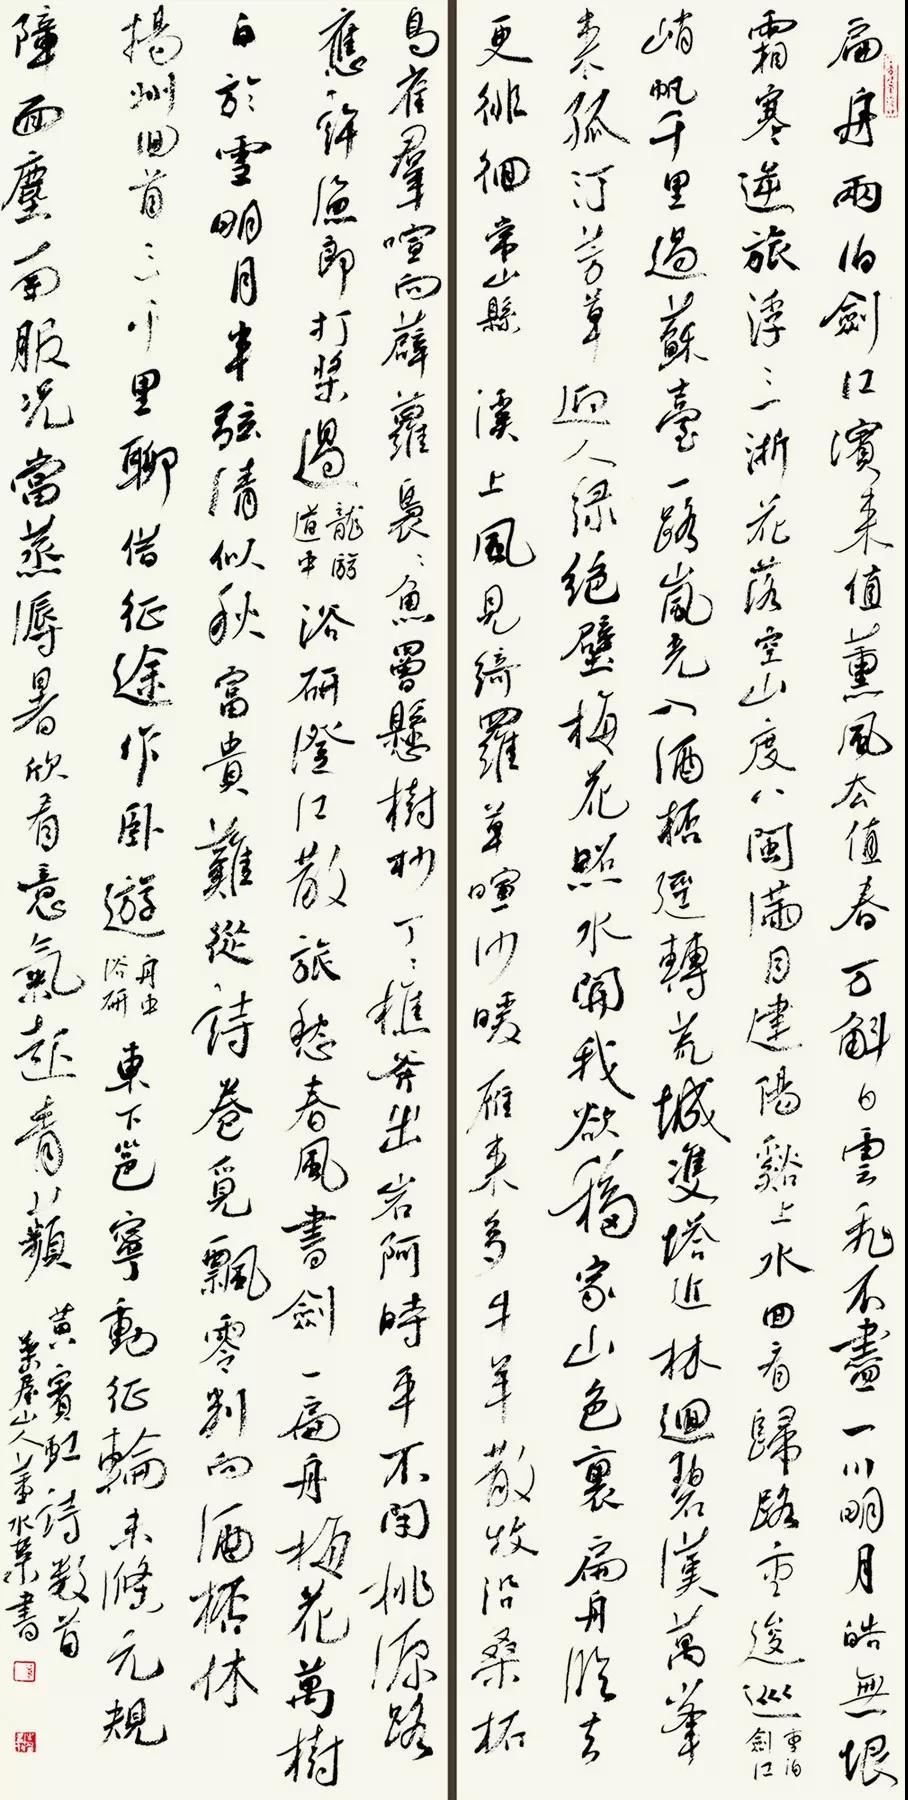 扁舟兩泊劍江濱來值薰風去值春万斛白雲飛不盡一川明月皓無垠
霜寒逆旅浮三浙花落空山度八閩滿目建陽谿上水回看歸路重逡巡
重泊
劍江
峭帆千里過蘇臺一路嵐光入酒桮逕轉荒城雙塔近林迴碧漢萬峯
來孤汀芳草迎人綠絕壁梅花照水開我欲移家山色裏扁舟臨去
更徘徊常山縣 溪上風見綺羅草暄沙暖雁來多牛羊散牧沿桑柘
鳥雀群喧向薜蘿裊〻魚罾懸樹杪丁〻樵斧出岩阿時平不閉桃源路
應許漁郎打槳過
龍游
道中
浴研澄江散旅愁春風書劍一扁舟梅花萬樹
白於雪明月半弦清似秋富貴難從詩卷覓飄零判向酒桮休
揚州回首三千里聊借征途作臥遊
舟中
浴研
東下邕寧動征輪未滌元規
障面塵南服況當蒸溽暑欣看意氣起青蘋
黃賓虹詩數首
葉屋山人葉水榮書